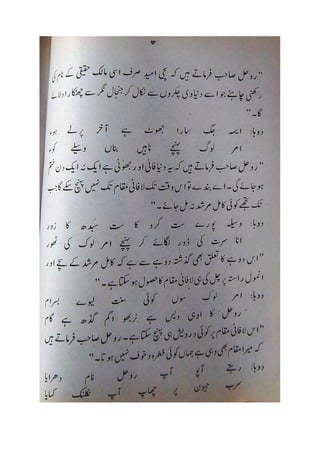 ۹
"روحل صاحب فرماتے ہیں کہ سچی امید صرف اسی مالک حقیقی کے نام کی
رکھنی چاہئے جو اسے دنیاوی چکروں سے نکال کر جنجال نگر سے چھٹکارا دلائے
گا۔"
دوہا: ایسہ جگ سارا جھوٹ ہے آخر پرلے ہوہ
امر لوک پہنچے ناہیں بناں وسیلے کوہ
"روحل صاحب فرماتے ہیں کہ یہ دنیا فانی اور جھوٹی ہے اک نہ اک دن ختم
ہو جائے گی۔ اے بندے تو اس وقت تک لافانی مقام تک پہنچ نہیں سکے گا جب
تک تجھے کوئی کامل مرشد نہ مل جائے۔"
دوہا: وسیلہ پورے ست گرو کا ست سبدھ کا زور
انا سرت کی ڈور لگائے کر پہنچے امر لوک کی ٹھور
"اس دوہے کا تعلق بھی گذشتہ دوہے سے ہے کہ کامل مرشد کے سچے اور
انمول راستہ پر چل کر ہی لافانی مقام کا حصول ہو سکتا ہے۔"
دوہا: امر لوک سوں کوئی سنت لیوے بسرام
روحل کا اوہی دیس ہے نربھو اگم گڈھ ہے گام
"اس لافانی مقام پر کوئی درویش ہی پہنچ سکتا ہے۔ روحل صاحب فرماتے ہیں
کہ میرا مقام بھی وہی ہے جہاں کوئی خطرہ و خوف نہیں ہوتا۔"
دوہا: رچے آپو آپ روحل نام دھرایا
سرب جیون پر چھاپ آپ نکلنک کہایا